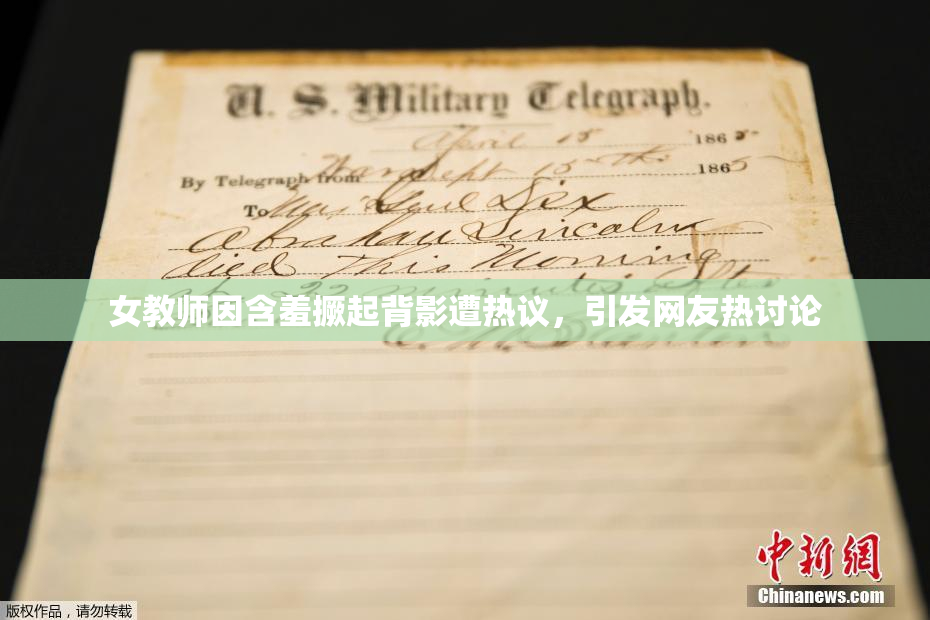 U. S. Military Telegraph.
April 15 1865
By Telegraph from War Dept 15th 1865
To Maj Genl Dix
Abraham Lincoln
died This Morning
at 22 minutes after
女教师因含羞撅起背影遭热议，引发网友热讨论
E. M. Stanton
中新网
Chinanews.com
版权作品，请勿转载